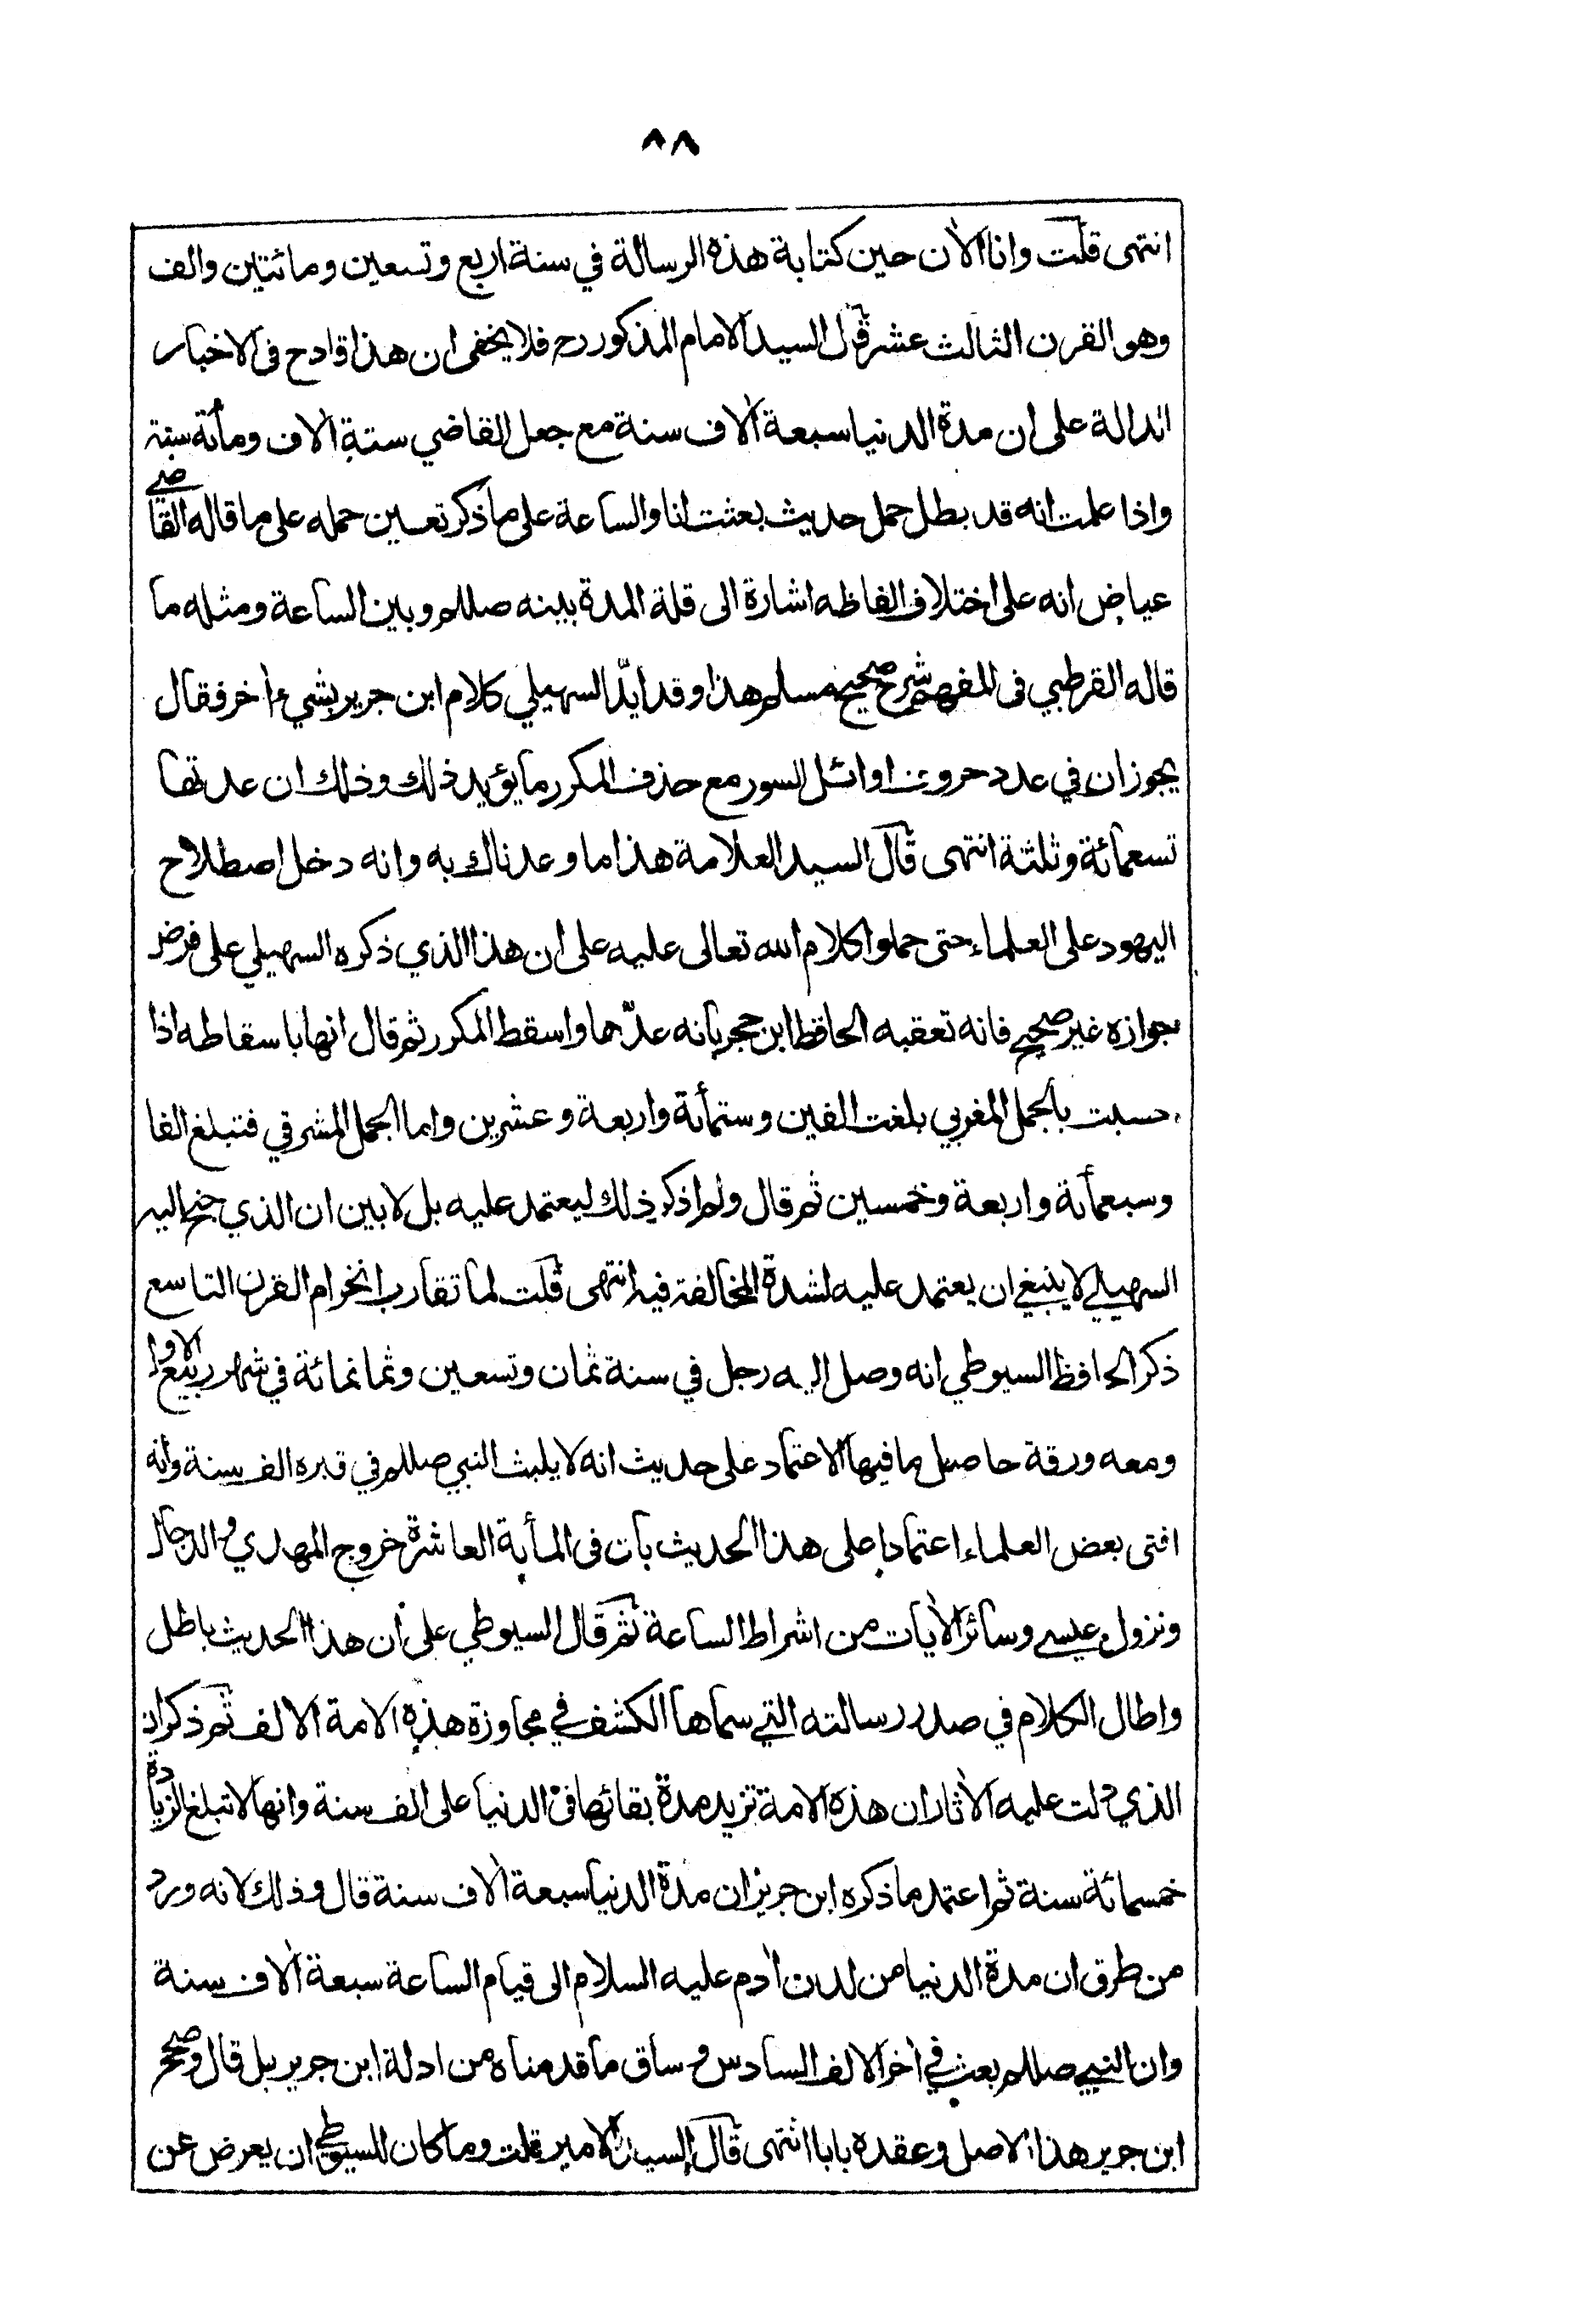 ٨٨
انتهى قلت وانا الآن حين كتابة هذه الرسالة في سنة اربع وتسعين ومائتين والف
وهو القرن الثالث عشر قال السيد الامام المذكور رح فلا يخفى ان هذا قادح فى الاخبار
الدالة على ان مدة الدنيا سبعة آلاف سنة مع جعل القاضي ستة آلاف ومأة سنة
واذا علمت انه قد بطل حمل حديث بعثت انا والساعة على ما ذكر تعين حمله على ما قاله القاضي
عياض انه على اختلاف الفاظه اشارة الى قلة المدة بينه صللم وبين الساعة ومثله ما
قاله القرطبي فى المفهم شرح صحيح مسلم هذا وقد ايّد السهيلي كلام ابن جرير بشيء أخر فقال
يجوز ان في عدد حروف اوائل السور مع حذف المكرر ما يؤيد ذلك وذلك ان عدتها
تسعمائة وثلثة انتهى قال السيد العلامة هذا ما وعدناك به وانه دخل اصطلاح
اليهود على العلماء حتى حملوا كلام الله تعالى عليه على ان هذا الذي ذكره السهيلي على فرض
جوازه غير صحيح فانه تعقبه الحافظ ابن حجر بانه عدّها واسقط المكرر ثم قال انها باسقاطه اذا
حسبت بالجمل المغربي بلغت الفين وستمأة واربعة وعشرين واما الجمل المشرقي فتبلغ الفا
وسبعمأة واربعة وخمسين ثم قال ولم اذكر ذلك ليعتمد عليه بل لابين ان الذي جنح اليه
السهيلي لا ينبغي ان يعتمد عليه لشدة المخالفة فيه انتهى قلت لما تقارب انخرام القرن التاسع
ذكر الحافظ السيوطي انه وصل اليه رجل في سنة ثمان وتسعين وثمانمائة في شهر ربيع الاول
ومعه ورقة حاصل ما فيها الاعتماد على حديث انه لا يلبث النبي صللم في قبره الف سنة وانه
افتى بعض العلماء اعتمادا على هذا الحديث بان فى المأية العاشرة خروج المهدي والدجال
ونزول عيسى وسائر الآيات من اشراط الساعة ثم قال السيوطي على أن هذا الحديث باطل
واطال الكلام في صدر رسالته التي سماها الكشف في مجاوزة هذه الامة الالف ثم ذكر ان
الذي دلت عليه الآثار ان هذه الامة تزيد مدة بقائها فى الدنيا على الف سنة وانها لا تبلغ الزيادة
خمسمائة سنة ثم اعتمد ما ذكره ابن جرير ان مدة الدنيا سبعة آلاف سنة قال وذلك لانه ورد
من طرق ان مدة الدنيا من لدن آدم عليه السلام الى قيام الساعة سبعة آلاف سنة
وان النبي صللم بعث في أخر الالف السادس وساق ما قدمناه من ادلة ابن جرير بل قال وصحح
ابن جرير هذا الاصل وعقده بابا انتهى قال السيد الامير قلت وما كان للسيوطي ان يعرض عن